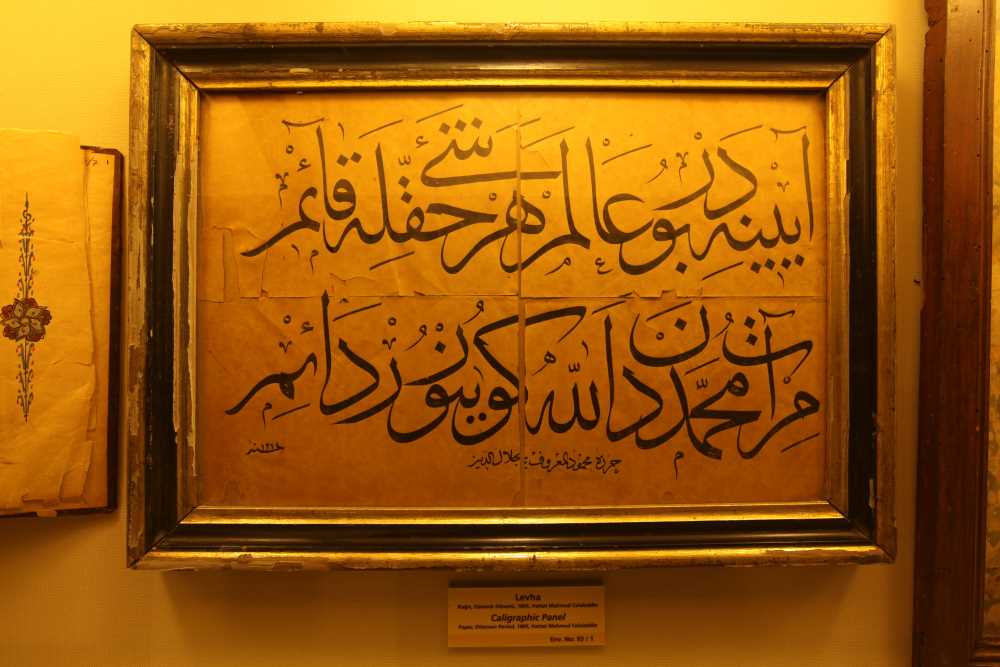 آيينه در بو عالم هر شئ حقّله قائم
مرآت محمّددن الله كورينور دائم
حرره محمود المعروف بجلال الدين
Levha
Kağıt, Osmanlı Dönemi, 1805, Hattat Mahmud Celaleddin
Caligraphic Panel
Paper, Ottoman Period, 1805, Hattat Mahmud Celaleddin
Env. No: 93 / 1